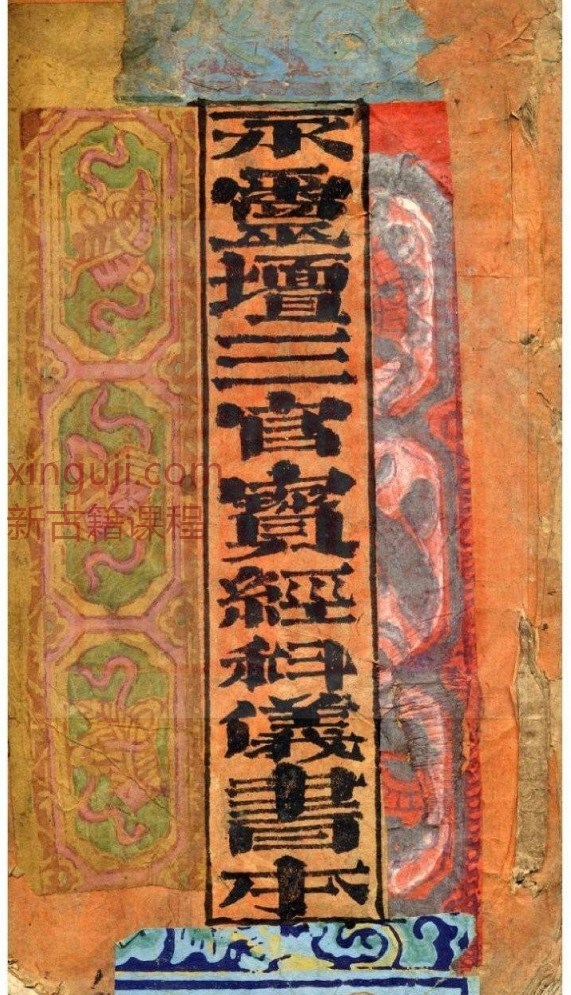 永靈壇三官寶經科儀書本
xinguji.com
新古籍课程